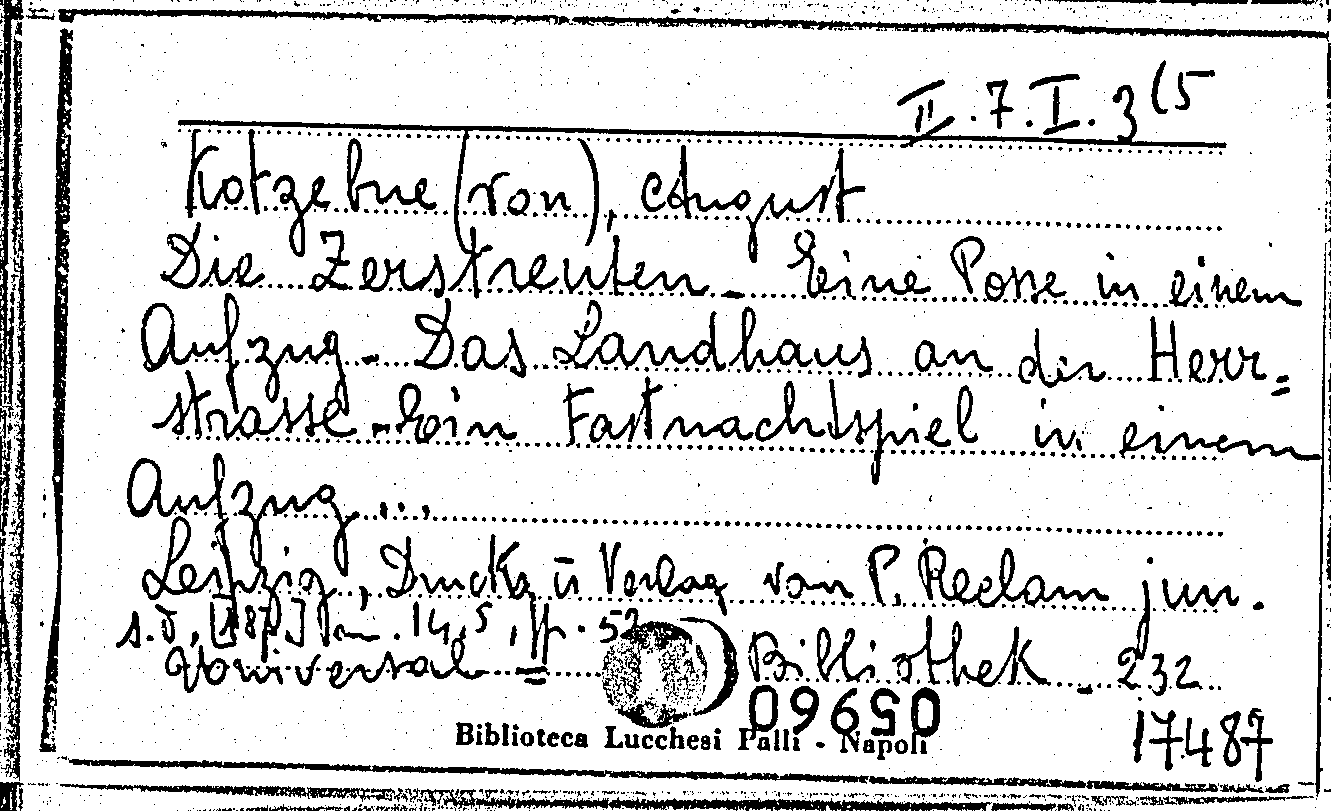 II.7.I.3(5
Kotzebue (von), August
Die Zerstreuten - Eine Posse in einem
Aufzug - Das Landhaus an der Heer=
strasse - Ein Fastnachtspiel in einem
Aufzug...
Leipzig, Druck u Verlag von P. Reclam jun.
s.d., 14,5, pp. 52
Universal = Bibliothek - 232
09650
17487
Biblioteca Lucchesi Palli - Napoli